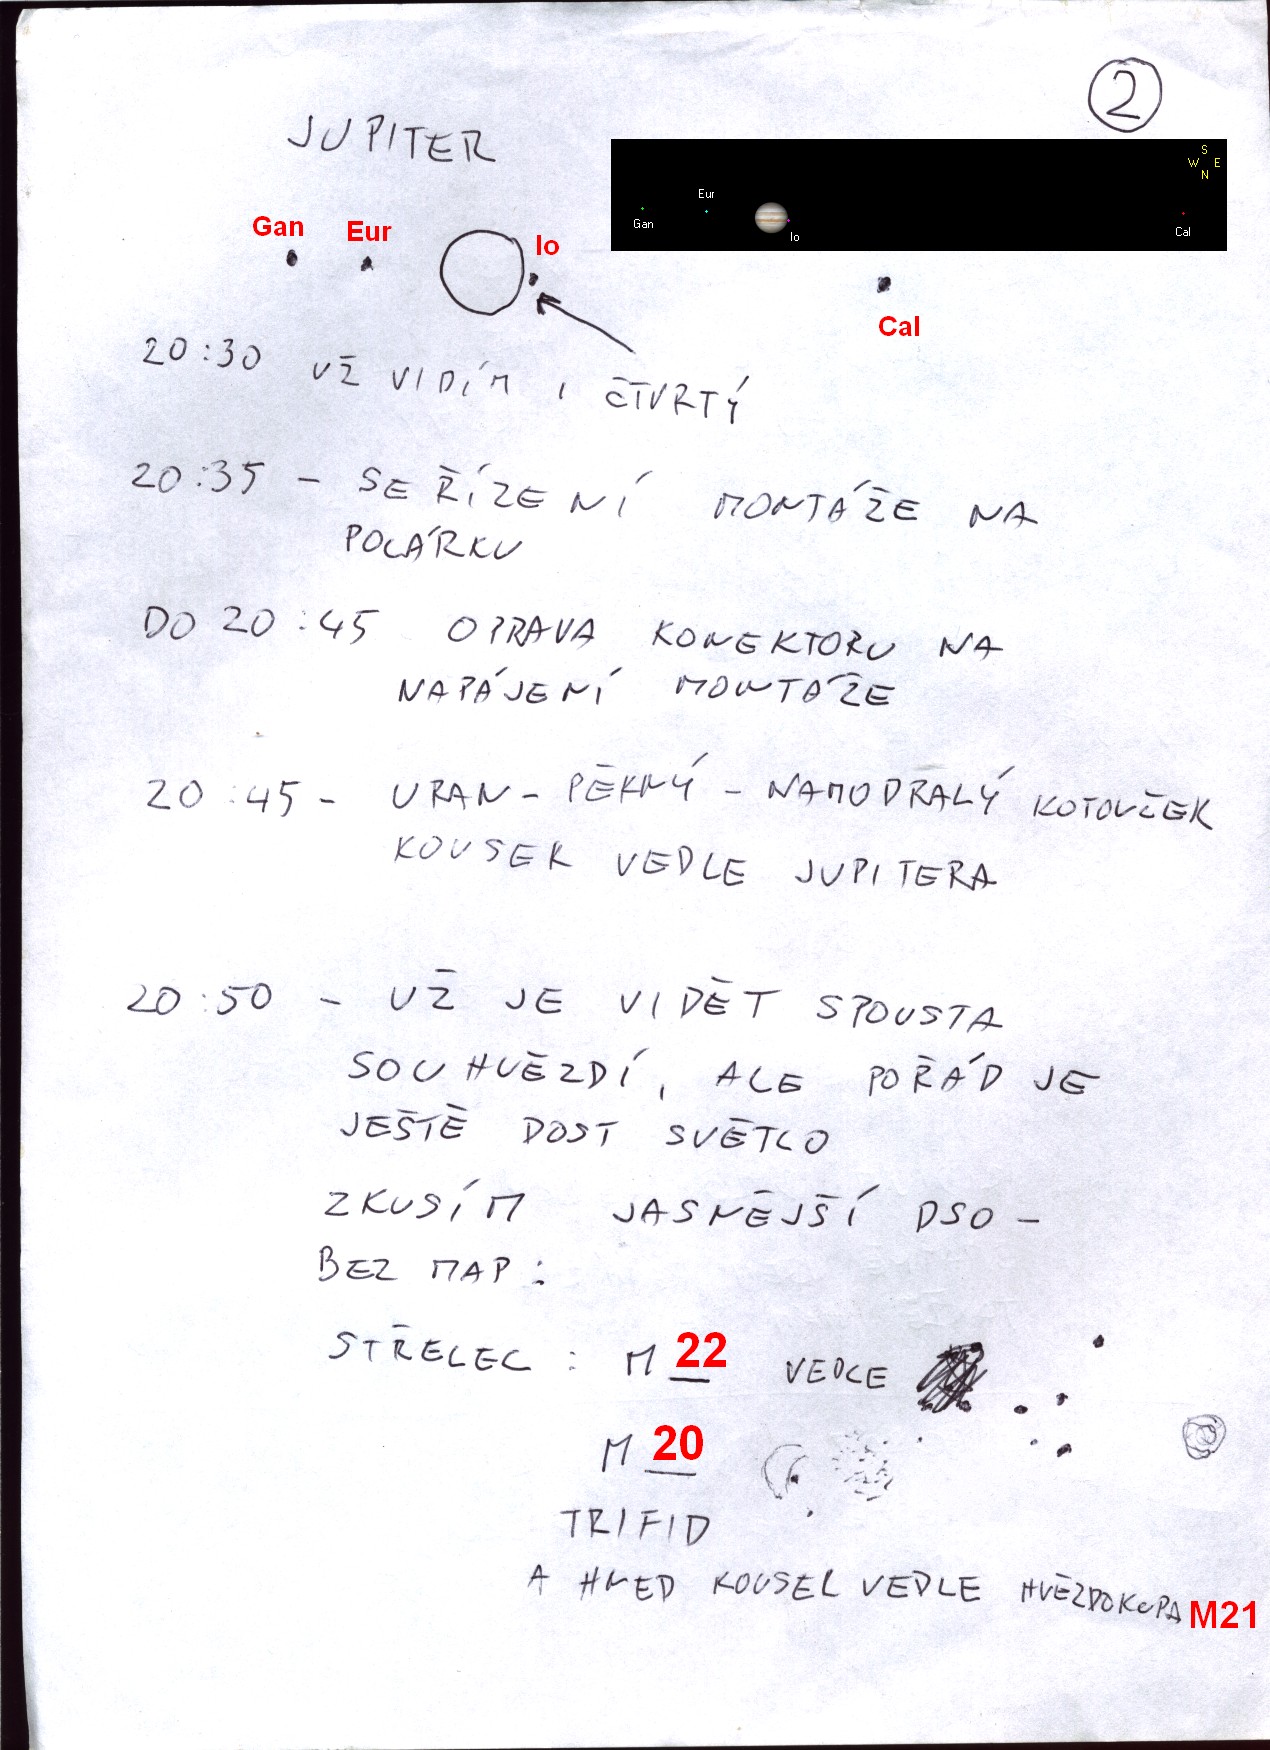 2
JUPITER
S
W E
N
Eur
Gan
Io
Cal
Gan Eur Io
Cal
20:30 UŽ VIDÍM I ČTVRTÝ
20:35 - SEŘÍZENÍ MONTÁŽE NA
POLÁRKU
DO 20:45 OPRAVA KONEKTORU NA
NAPÁJENÍ MONTÁŽE
20:45 - URAN - PĚKNÝ - NAMODRALÝ KOTOUČEK
KOUSEK VEDLE JUPITERA
20:50 - UŽ JE VIDĚT SPOUSTA
SOUHVĚZDÍ, ALE POŘÁD JE
JEŠTĚ DOST SVĚTLO
ZKUSÍM JASNĚJŠÍ DSO -
BEZ MAP:
STŘELEC: M 22 VEDLE
M 20
TRIFID
A HNED KOUSEK VEDLE HVĚZDOKUPA M21